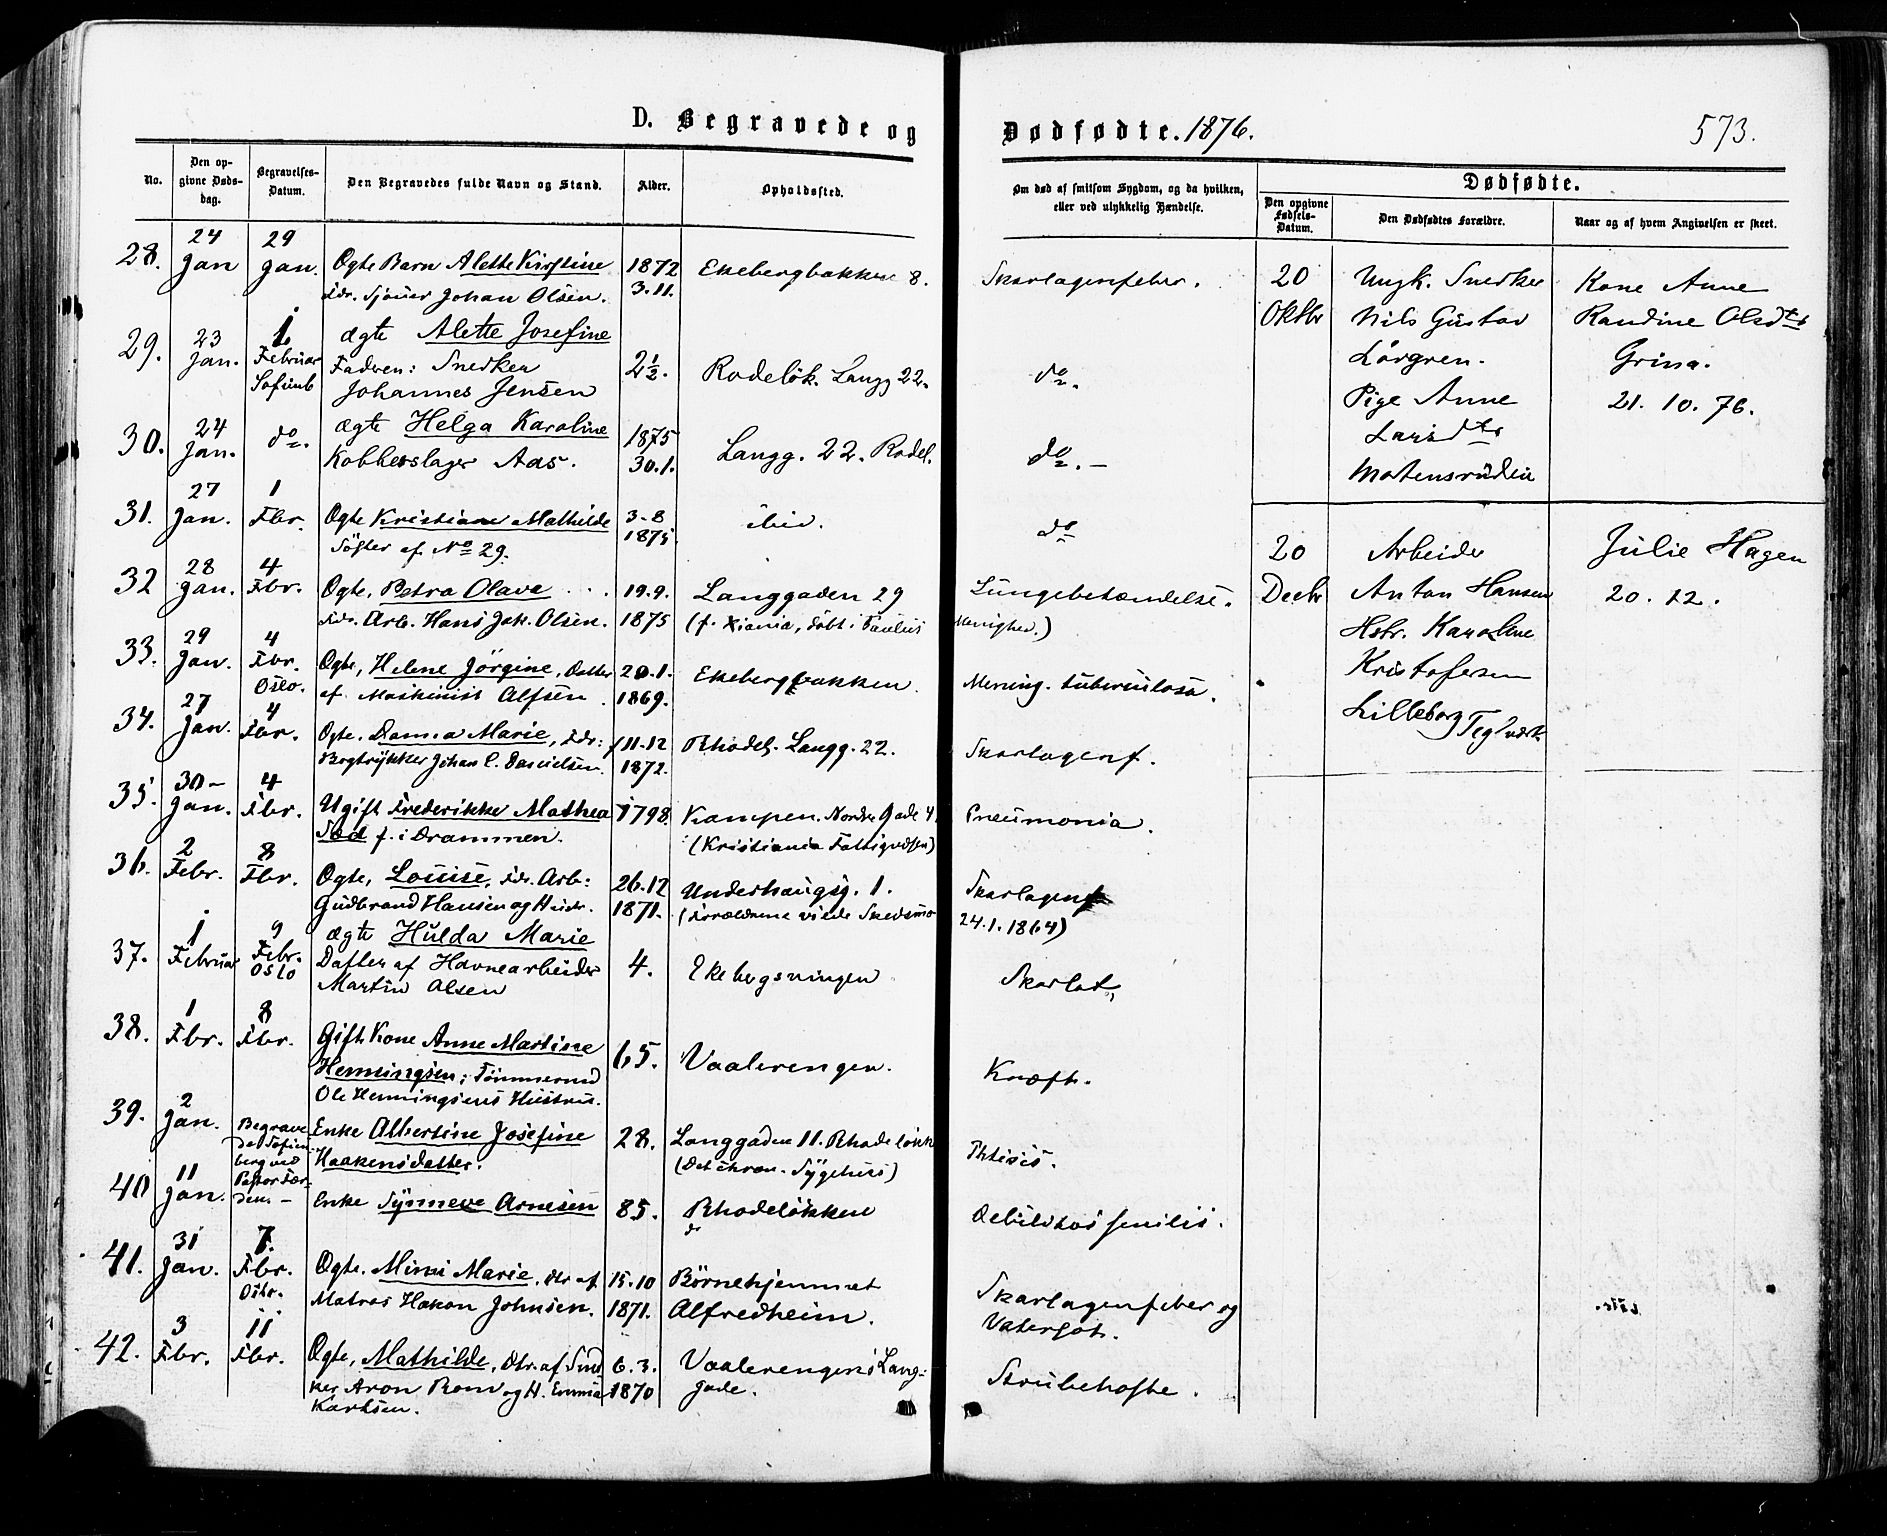 D. Begravede og Dødfødte. 1876. 573.
No.
Den op-
givne Døds-
dag.
Begravelses-
Datum.
Den Begravedes fulde Navn og Stand.
Alder.
Opholdssted.
Om død af smitsom Sygdom, og da hvilken,
eller ved ulykkelig Hændelse.
Dødfødte.
Den opgivne
Fødsels-
Datum.
Den Dødfødtes Forældre.
Naar og af hvem Angivelsen er skeet.
28. 24 Jan 29 Jan. Ægte Barn Alette Kirstine 1872 Ekebergbakken 8. Skarlagenfeber.
Fdr. Sjömd Johan Olsen. 3.11.
29. 23 Jan. 1. Februar ægte Alette Josefine
Faderen: Snedker 2½. Rodelök. Langg 22. do.
Johannes Jensen
30. 24 Jan. do. ægte Helga Karoline 1875 Langg. 22. Rodel. do. -
Kobberslager Aas. 30.1.
31. 27 Jan. 1 Fbr. Ægte Kristiane Mathilde 3-8 ibid. do
Söster af No 29. 1875
32 28 Jan. 4 Fbr. Ægte, Petra Olava 19.9. Langgaden 29 Lungebetændelse.
Fdr. Arb. Hans Joh. Olsen. 1875 (f. Xiania, döbt i Paulus Menighed.)
33. 29 Jan. 4 Fbr. Oslo. Ægte, Helene Jörgine, Datter 20.1. Ekebergbakken. Mening. tuberculosa.
af Maskinist Alfsen. 1869.
34. 27 Jan. 4 Fbr. Ægte. Danna Marie, Fdr: 11.12 Rhodel. Langg. 22. Skarlagenf.
Bogtrykker Johan C. Danielsen. 1872.
35. 30- Jan. 4 Fbr. Ugift Frederikke Mathea 1798. Kampen. Nordre Gade 4. Pneumonia.
f. i Drammen. (Kristiania Fattigvæsen)
36. 2 Febr. 8 Fbr. Ægte, Louise, Fdr. Arb: 26.12 Underhaugsg. 1. Skarlagenf
Gudbrand Hansen og Hustr. 1871. (Forældrene viede Skedsmo 24.1.1864)
37. 1 Februar 9 Febr. Oslo ægte Hulda Marie
Datter af Havnearbeider 4. Ekebergsvingen Skarlat,
Martin Olsen
38. 1 Fbr. 8 Fbr. Gift Kone Anne Martine
Henningsen; Tömmermd 65. Vaalerengen. Kræft.
Ole Henningsens Hustru.
39. 2 Jan. Begravede Sofienberg ved Pastor Færden. - Enke Albertine Josefine 28. Langgaden 11. Rhodelökk Phtisis.
Haakensdatter. (Det chron. Sygehus)
40 11 Jan. Enke Synneve Arnesen 85. Rhodelökken Debilitas senilis.
41. 31 Jan. 7. Fbr. Oslo. Ægte. Mimi Marie, dtr af 15.10 Börnehjemmet Skarlagenfeber og
Matros Hakon Johnsen. 1871. Alfredheim. Vatersot.
42. 3 Fbr. 11 Fbr. Ægte, Mathilde, dtr. af Sned 6.3. Vaalerengens Lang- Strubehoste.
ker Aron Rom og H. Emma 1870 gade.
Karlsen.
20 Oktbr
Ungk. Snedker
Nils Gustav
Lövgren.
Pige Anne
Larsdtr
Mortensrudeie
Kone Anne
Randine Olsdtr
Grina.
21. 10. 76.
20 Decbr
Arbeider
Anton Hansen
Hstr. Karoline
Kristofersen
Lilleborg Teglværk
Julie Hagen
20. 12.